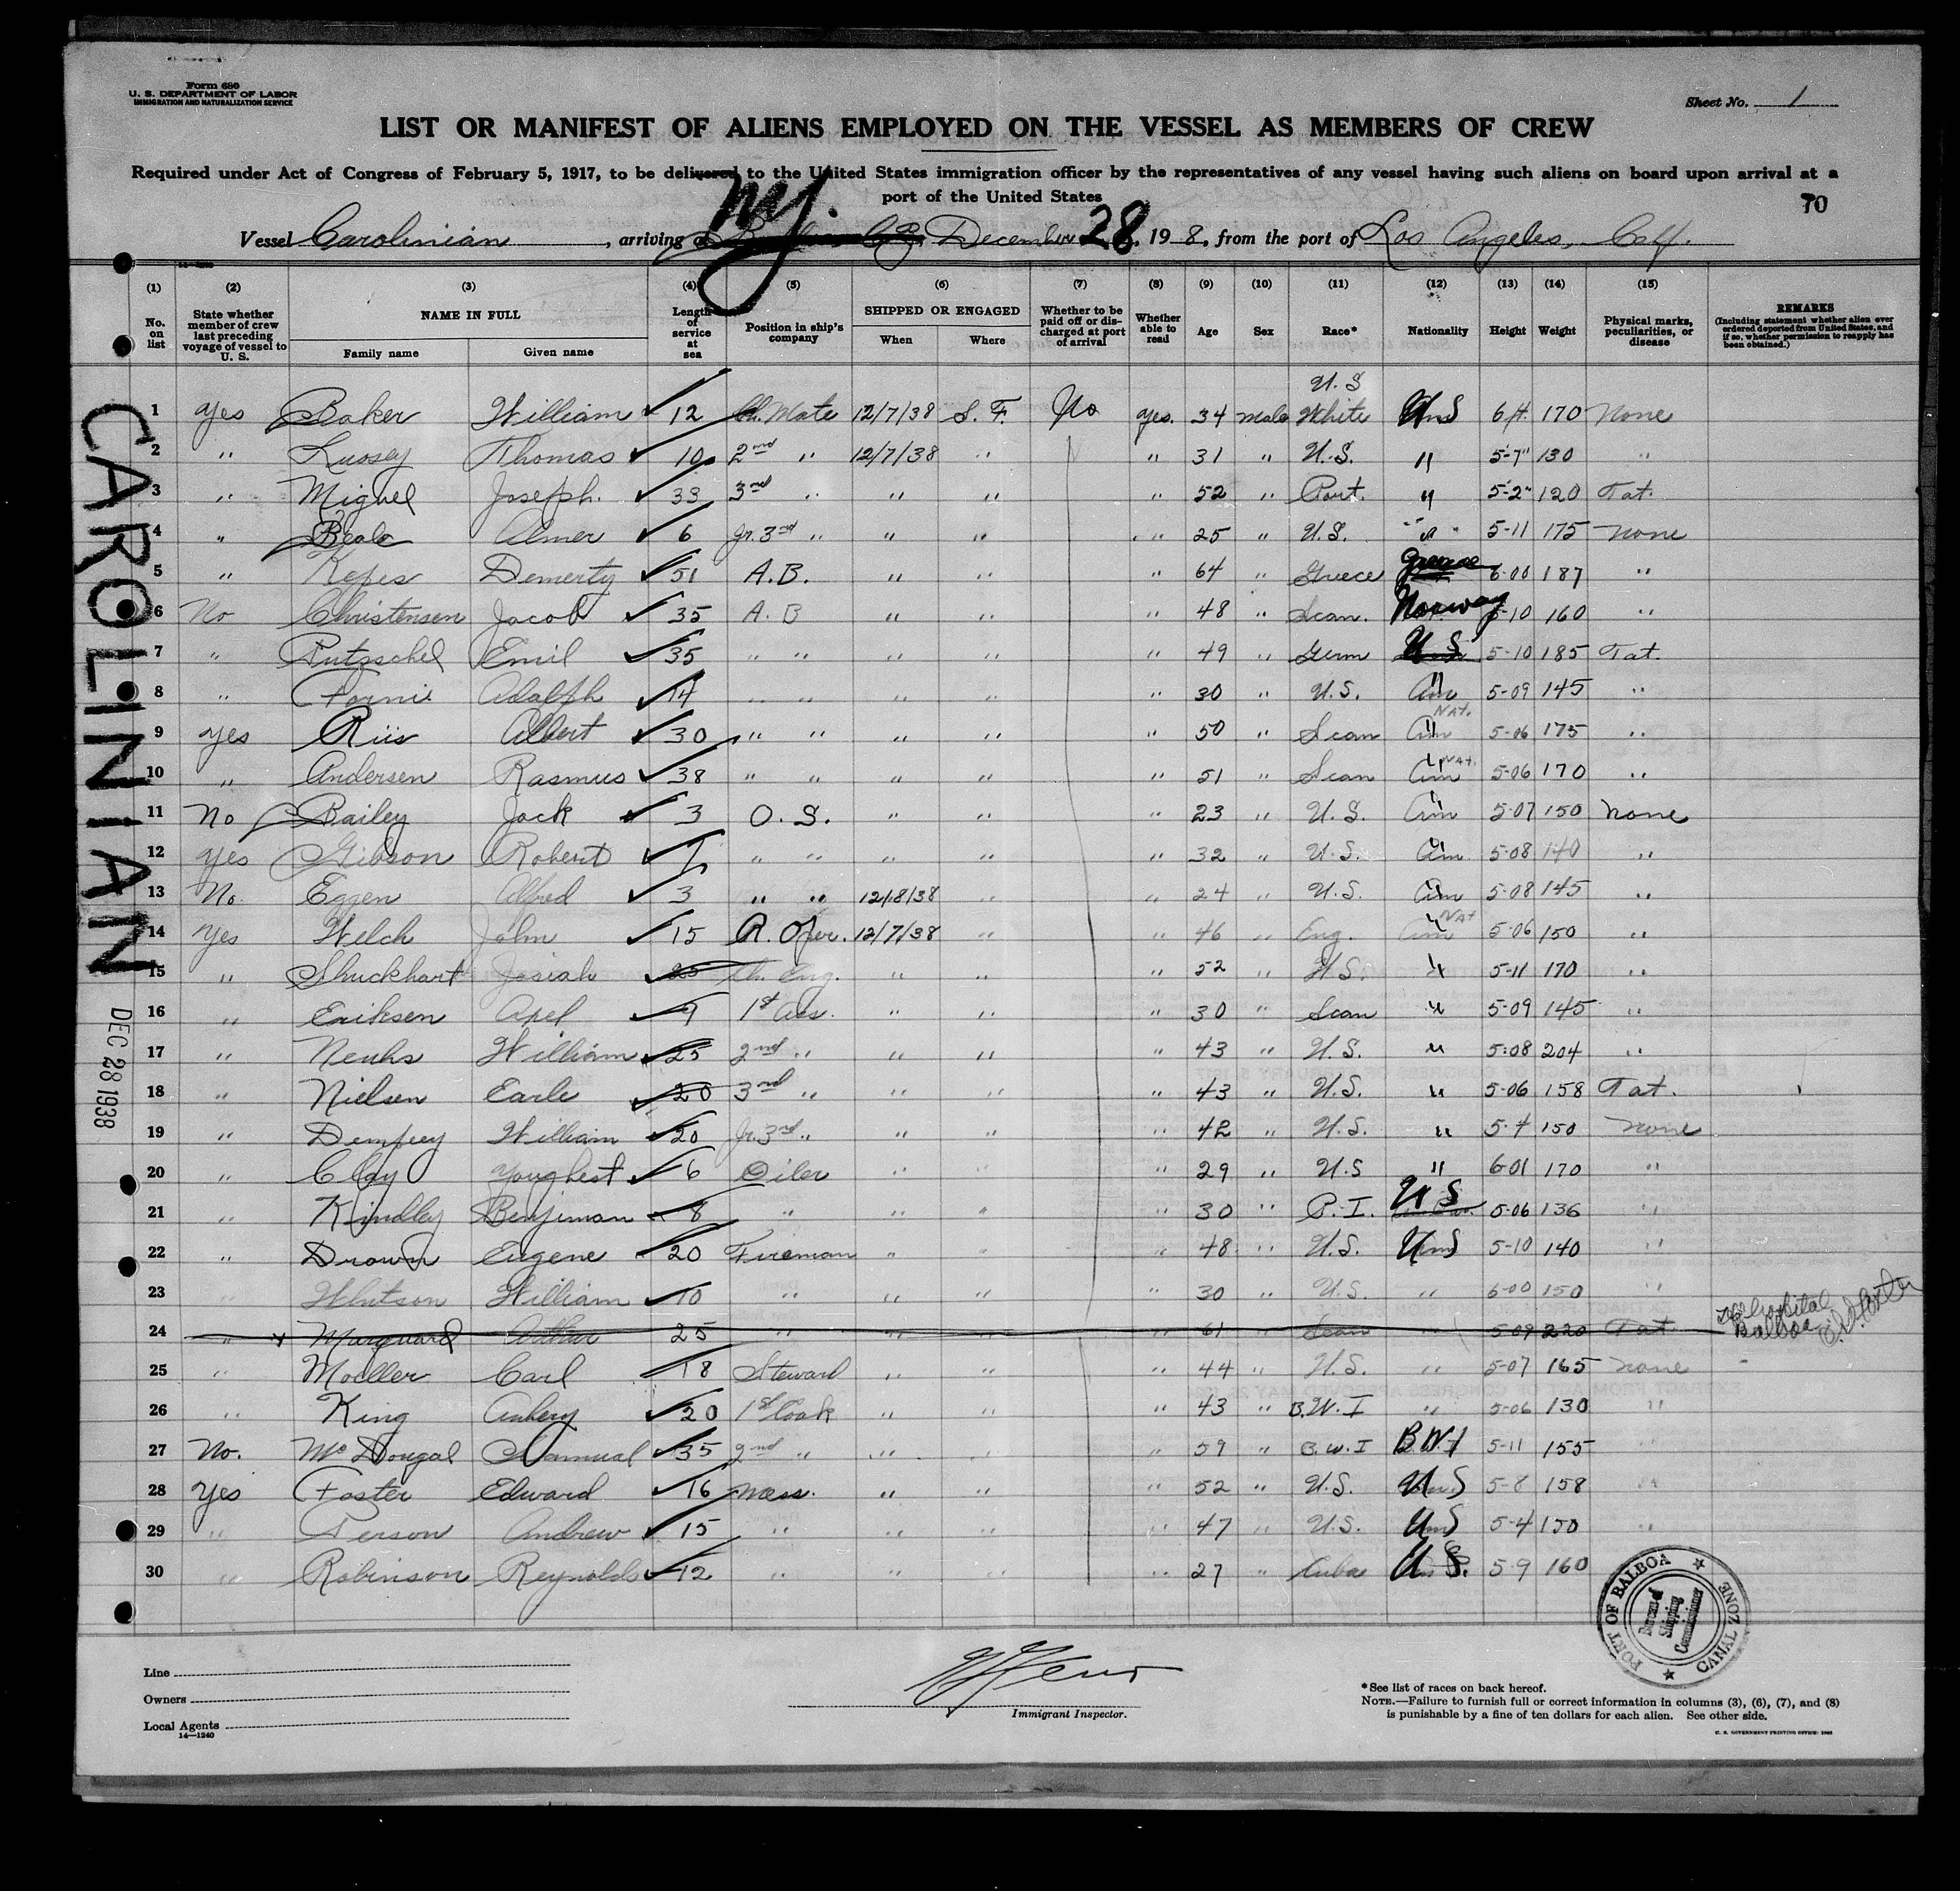 Form 680
U. S. DEPARTMENT OF LABOR
IMMIGRATION AND NATURALIZATION SERVICE
Sheet No. 1
LIST OR MANIFEST OF ALIENS EMPLOYED ON THE VESSEL AS MEMBERS OF CREW
Required under Act of Congress of February 5, 1917, to be delivered to the United States immigration officer by the representatives of any vessel having such aliens on board upon arrival at a
port of the United States
70
Vessel Carolinian, arriving at NY. December 28, 19 8, from the port of Los Angeles, Calf.
(1) (2) (3) (4) (5) (6) (7) (8) (9) (10) (11) (12) (13) (14) (15)
No. on list State whether member of crew last preceding voyage of vessel to U. S. NAME IN FULL Family name Given name Length of service at sea Position in ship's company SHIPPED OR ENGAGED When Where Whether to be paid off or discharged at port of arrival Whether able to read Age Sex Race* Nationality Height Weight Physical marks, peculiarities, or disease REMARKS (Including statement whether alien ever ordered deported from United States, and if so, whether permission to reapply has been obtained.)
U.S
1 Yes Baker William 12 Ch. Mate 12/7/38 S. F. No yes. 34 Male White US 6 ft 170 None
2 " Thomas 10 2nd " 12/7/38 " " 31 " U.S. " 5-7" 130 "
3 " Miguel Joseph. 33 3nd " " " " 52 " Port. " 5-2" 120 Tat.
4 " Beale Almer 6 Jr. 3nd " " " " 25 " U.S. " 5-11 175 none
5 " Kepes Demerty 51 A.B. " " " 64 " Greece Greece 6-00 187 "
6 No Christensen Jacob 35 A.B " " " 48 " Scan. Norway 5-10 160 "
7 " Putzschel Emil 35 " " " " " 49 " Germ U S 5-10 185 Tat.
8 " Forni Adolph 14 " " " " " 30 " U.S. " 5-09 145 "
9 yes Riis Albert 30 " " " " " 50 " Scan " Nat. 5-06 175 "
10 " Andersen Rasmus 38 " " " " " 51 " Scan " Nat. 5-06 170 "
11 No Bailey Jack 3 O. S. " " " 23 " U.S. " 5-07 150 None
12 yes Gibson Robert 7 " " " " " 32 " U.S. " 5-08 140 "
13 No. Eggen Alfred 3 " " 12/8/38 " " 24 " U.S. " 5-08 145 "
14 Yes Welch John 15 R. Oper. 12/7/38 " " 46 " Eng. " Nat 5-06 150 "
15 " Shuckhart Josiah 25 Ch. Eng. " " " 52 " U.S. " 5-11 170 "
16 " Eriksen Axel 9 1st Ass. " " " 30 " Scan " 5-09 145 "
17 " Neuhs William 25 2nd " " " " 43 " U.S. " 5-08 204 "
18 " Nielsen Earle 20 3nd " " " " 43 " U.S. " 5-06 158 Tat.
19 " Dempsey William 20 Jr. 3nd " " " " 42 " U.S. " 5-4 150 none
20 " Clay Youghest 6 Oiler " " " 29 " U.S " 6-01 170 "
21 " Kindley Benjiman 8 " " " " 30 " P.I. U S 5-06 136 "
22 " Drown Eugene 20 Fireman " " " 48 " U.S. US 5-10 140 "
23 " Whitson William 10 " " " " 30 " U.S. " 6-00 150 "
24 " Marquard Arthur 25 " " " 61 " Scan " 5-09 220 Tat Hospital Balboa
25 " Moeller Carl 18 Steward " " " 44 " U.S. " 5-07 165 none
26 " King 20 1st Cook " " " 43 " B.W.I " 5-06 130 "
27 No. McDougal Samual 35 2nd " " " " 59 " B.W.I B.W.I 5-11 155 "
28 Yes Foster Edward 16 Mess. " " " 52 " U.S. US 5-8 158 "
29 " Person Andrew 15 " " " " 47 " U.S. US 5-4 150 "
30 " Robinson Reynolds 12 " " " " 27 " Cuba US. 5-9 160
CAROLINIAN
DEC 28 1938
PORT OF BALBOA
CANAL ZONE
Bureau of Shipping Commissioner
Line
Owners
Local Agents
14—1240
Immigrant Inspector.
*See list of races on back hereof.
NOTE.—Failure to furnish full or correct information in columns (3), (6), (7), and (8)
is punishable by a fine of ten dollars for each alien. See other side.